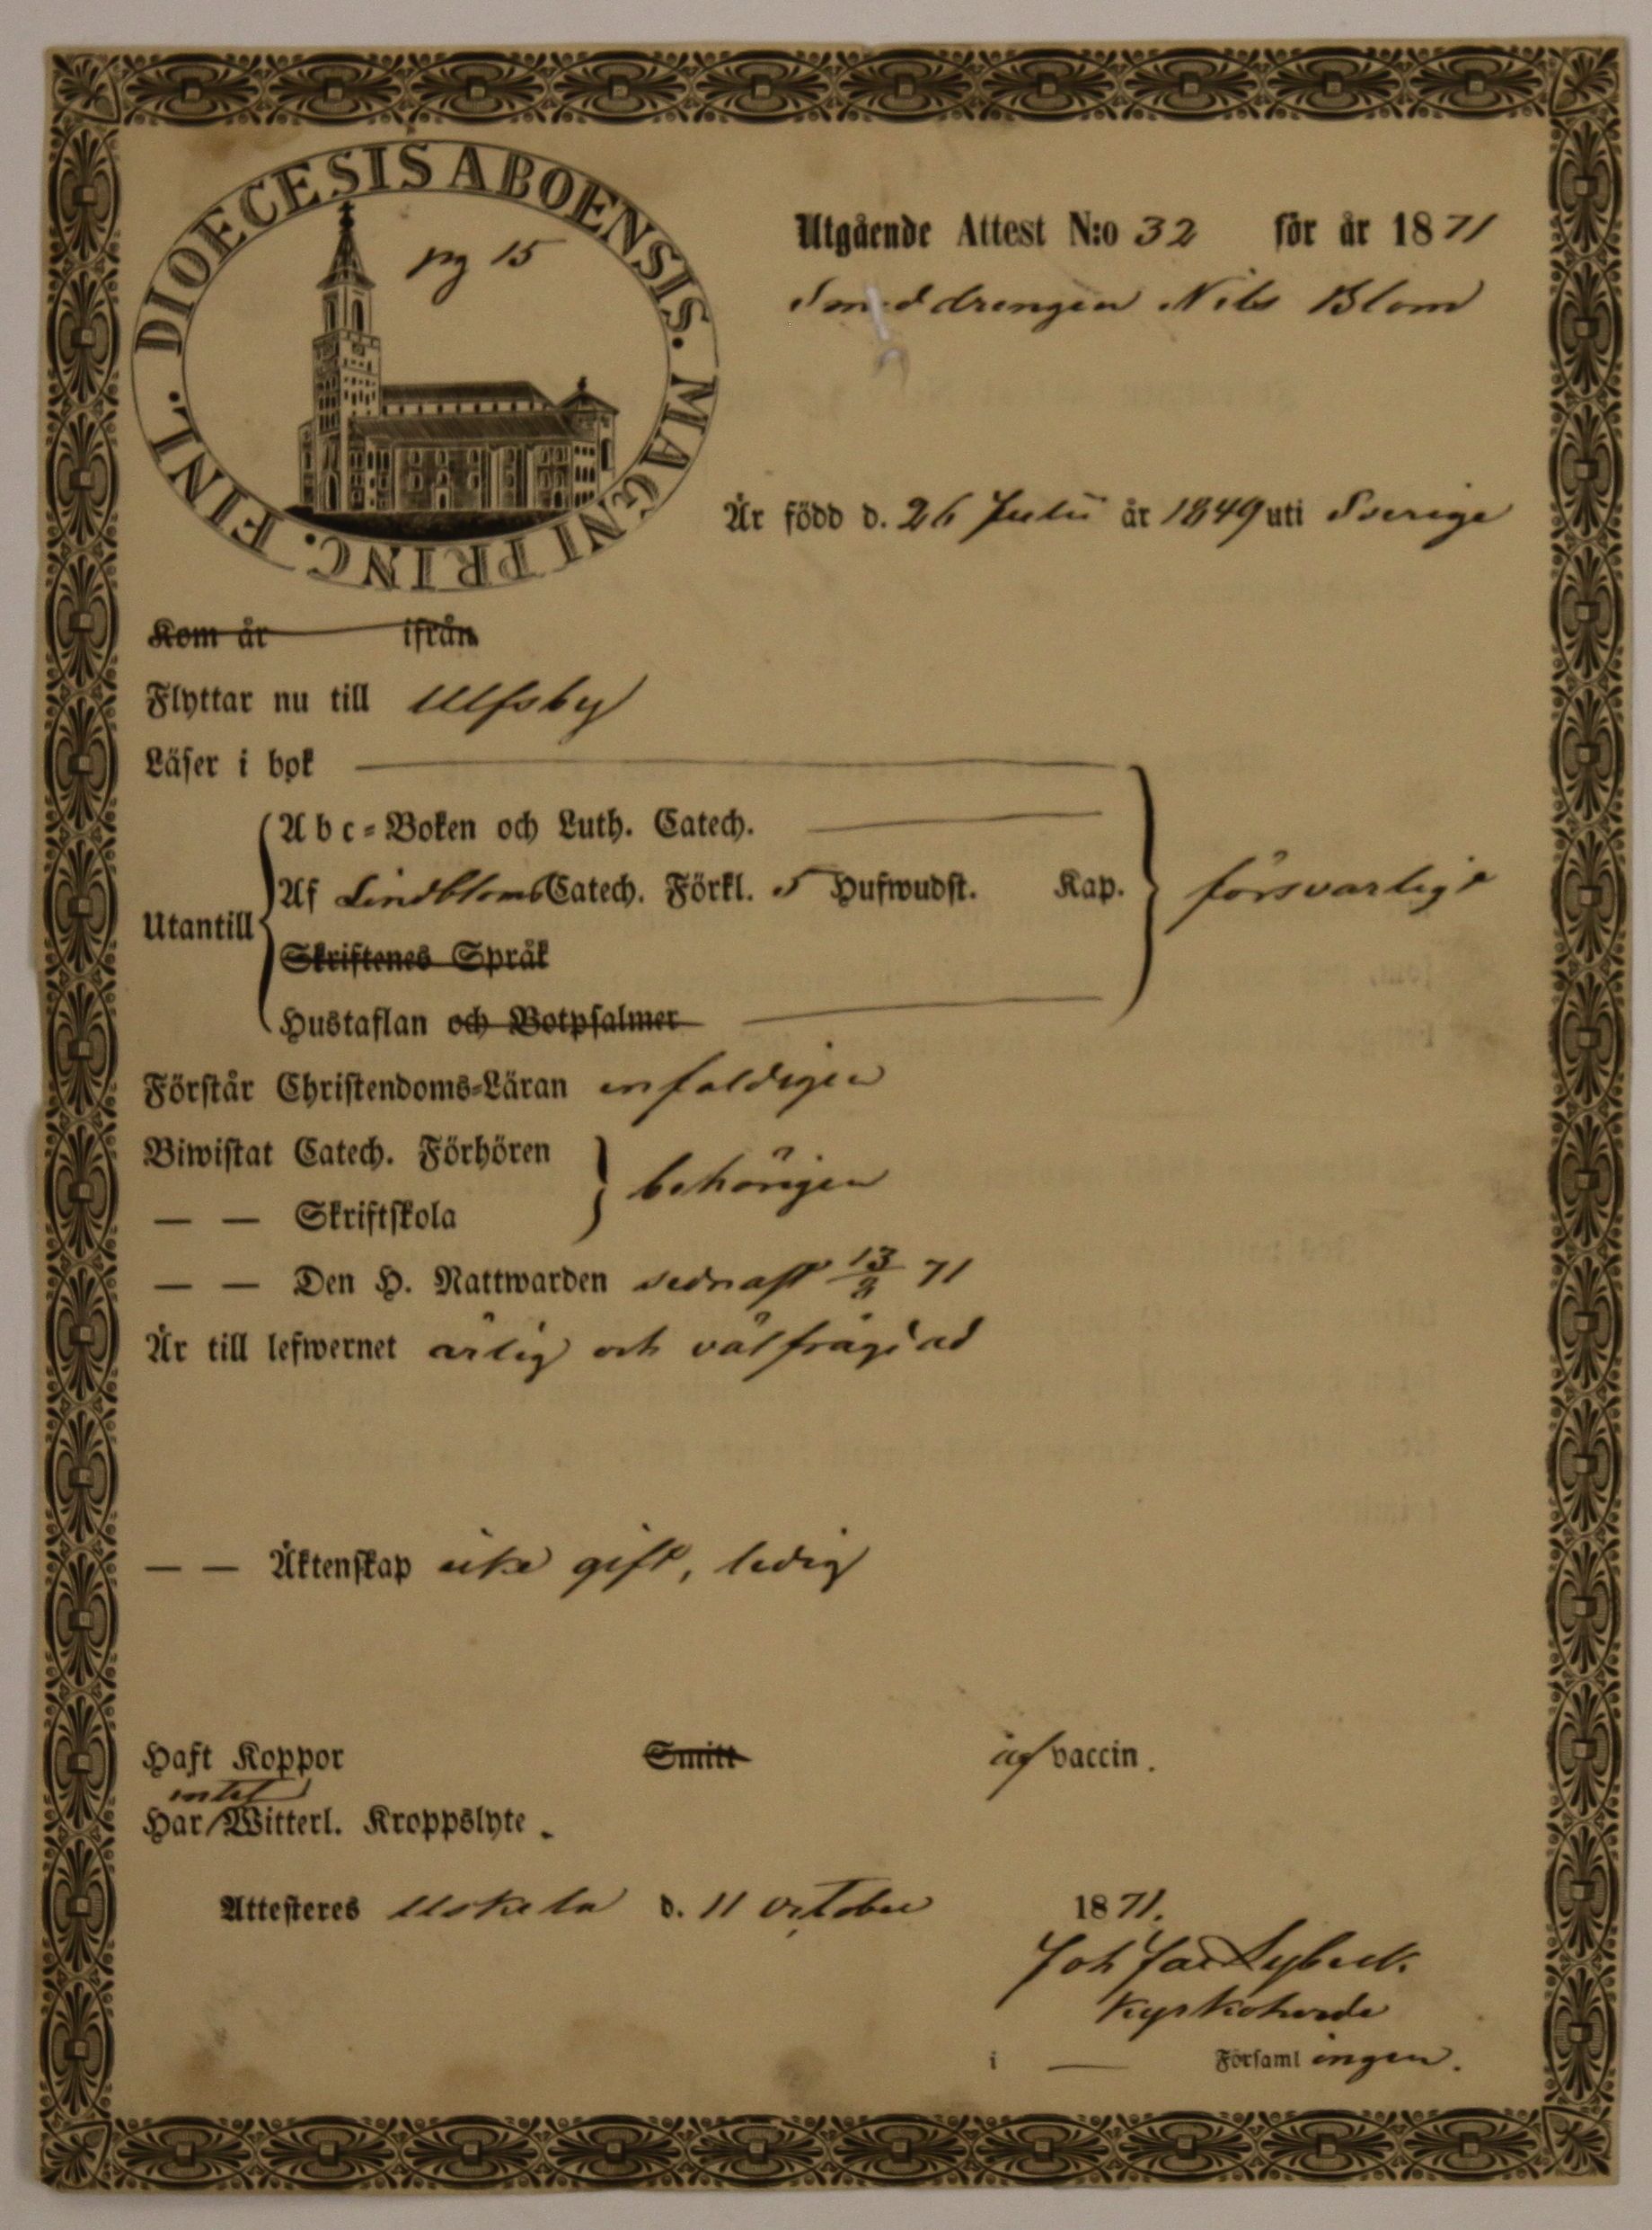 DIOECESIS ABOENSIS. MAGNI PRINC. FINL.
pg 15
Utgående Attest N:o 32 för år 1871
Smeddrengen Nils Blom
Är född d. 26 Julii år 1849 uti Sverige
Kom år ifrån
Flyttar nu till Ulfsby
Läser i bok
Abc-Boken och Luth. Catech.
Af Lindbloms Catech. Förkl. 5 Hufwudst. Kap. försvarligt
Utantill
Skriftenes Språk
Hustaflan och Botpsalmer
Förstår Christendoms-Läran enfaldigen
Biwistat Catech. Förhören
behörigen
— — Skriftskola
— — Den H. Nattwarden sednast 13/8 71
Är till lefwernet ärlig och välfrägdad
— — Äktenskap icke gift, ledig
Haft Koppor Smitt af vaccin.
intet
Har Witterl. Kroppslyte.
Attesteres Uskela d. 11 October 1871.
Joh Jac Lybeck.
Kyrkoherde
i — Församlingen.